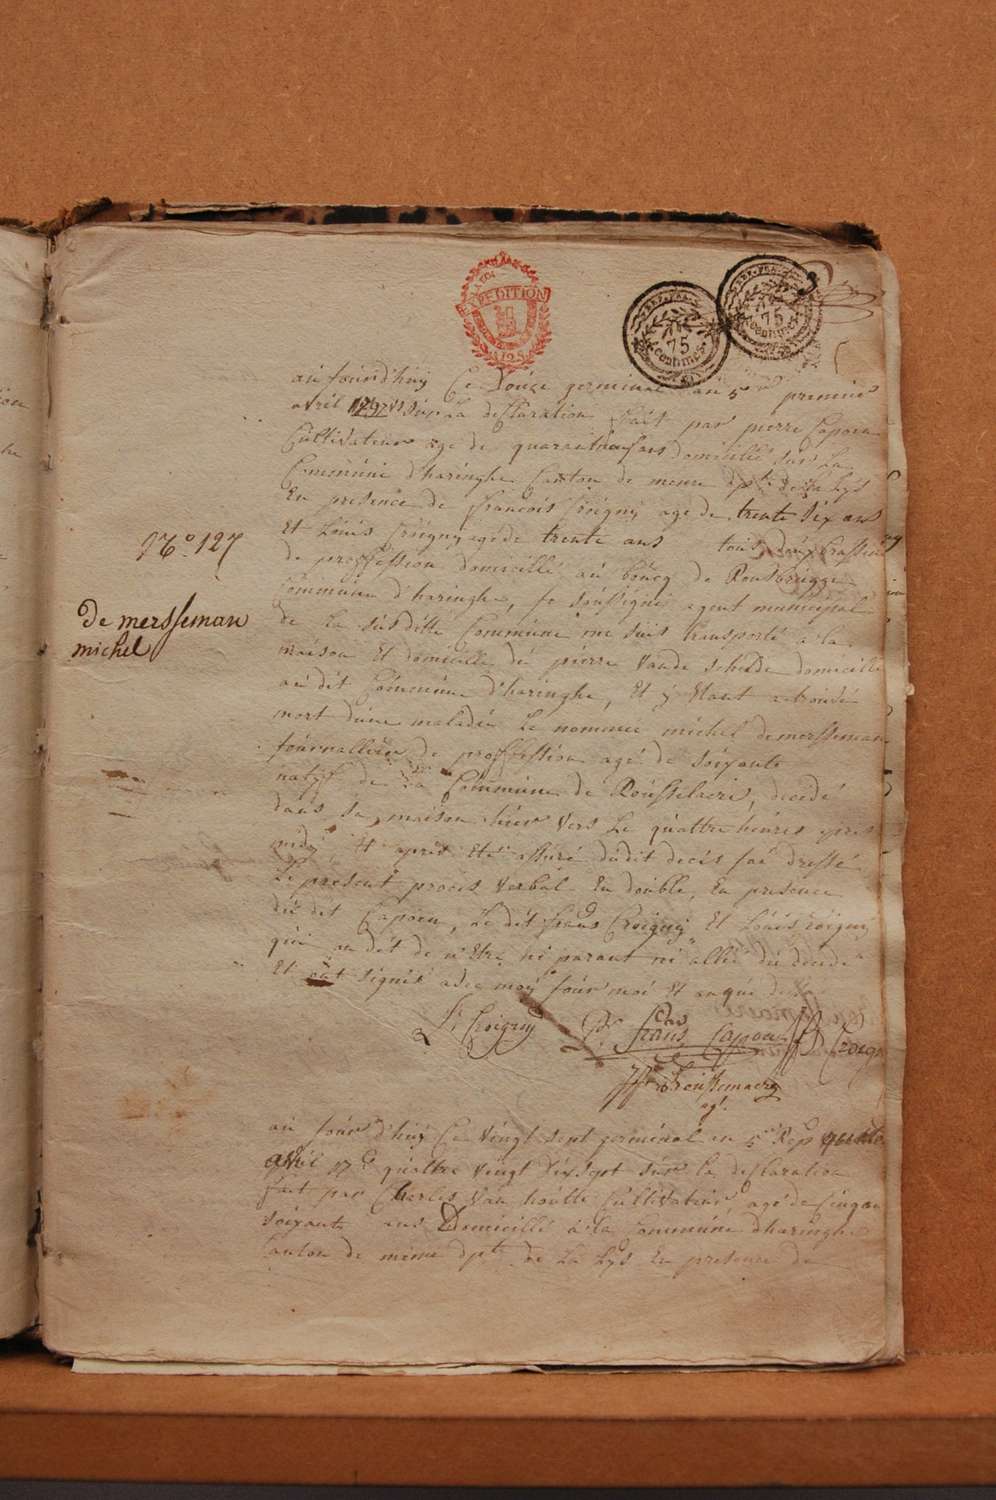 EXPEDITION
REP. FRA.
75
centimes
REP. FRA.
75
centimes
au jourd'huy Ce Douze germinal an 5me premier
avril 1797 vs sur La declaration fait par pierre Capoen
Cultivateur age de quarante ans domicillié sur La
Commune d'haringhe Canton de meme dpt de La Lys
En presence de francois Croigny age de trente six ans
Et Louis Croigny agé de trente ans tous deux brasseur
de proffession domicillié au bourg de Rousbrugge
Commune d'haringhe, je soussigné agent municipal
de La susditte Commune me suis transporté a la
maison Et domicille du pierre vande schelde domicillié
au dit Commune d'haringhe, Et y Etant a trouvé
mort d'une maladie Le nommée michel demersseman
journallier de proffession agé de soixante
natif de La Commune de Rousselaere, decedé
dans sa maison hier vers Le quattre heures apres
midy Et après Eté assuré dudit decés j'ai dressé
Le present procès verbal En double, En presence
du dit Capoen, Le dit frans Croigny Et Louis Croigny
qui on dit de n'Etre ni parant ni allié du decede
Et ont signé avec moy jour moi et an que dessus
No. 127
de mersseman
michel
L: Croigny
frans Capoen
Croigny
agt.
au jour d'huy Ce vingt sept germinal an 5me Rep
avril 17c quattre vingt dix sept sur la declaration
fait par Charles van houtte Cultivateur, agé de
soixante ans Domicillié a la Commune d'haringhe
Canton de même dpt de La Lys En presence de